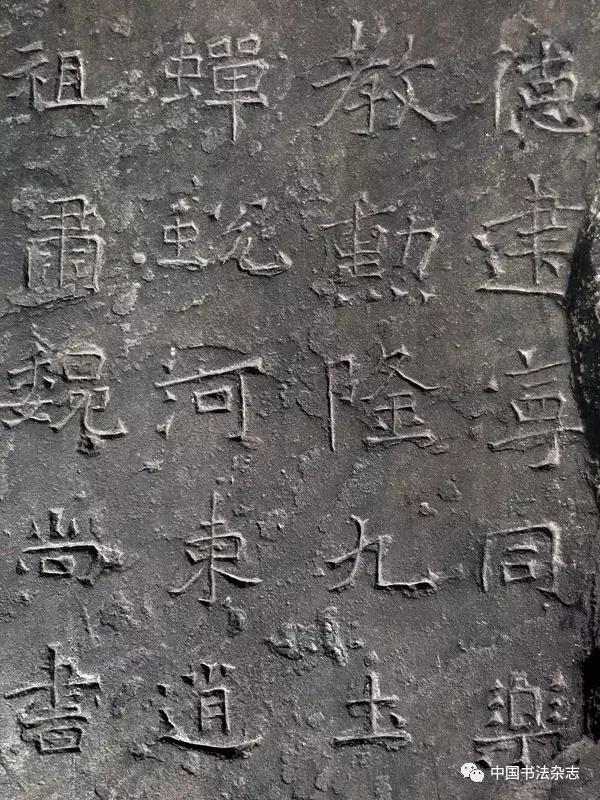 德建淳同樂
教勳隆九土
蟬蛻河東逍
祖魏尚書
中国书法杂志